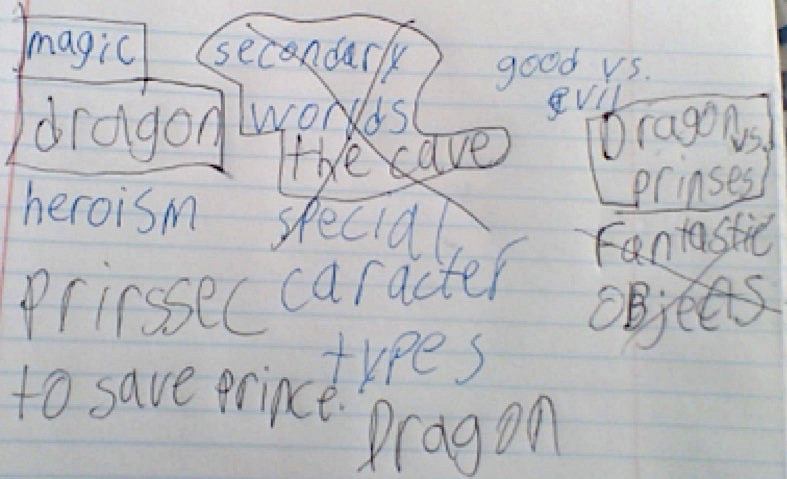 magic
dragon
heroism
prirssec
to save prince.
secondary
worlds
the cave
special
caracter
types
Dragon
good vs.
evil
Dragon vs.
prinses
Fantastic
OBjects